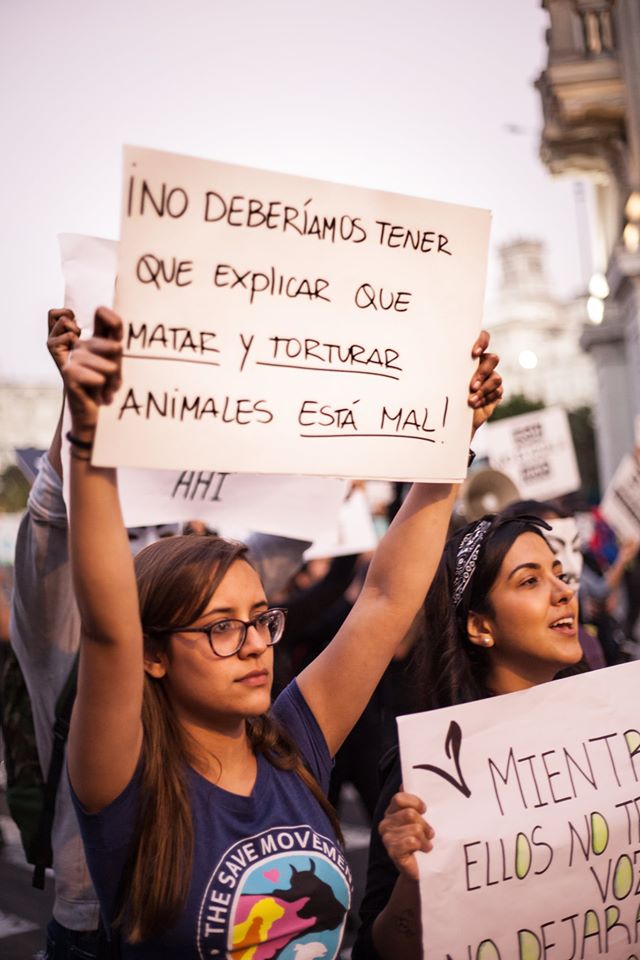 ¡NO DEBERÍAMOS TENER
QUE EXPLICAR QUE
MATAR Y TORTURAR
ANIMALES ESTÁ MAL!
AHÍ
THE SAVE MOVEMENT
MIENTR
ELLOS NO T
VOZ
NO DEJARÁ